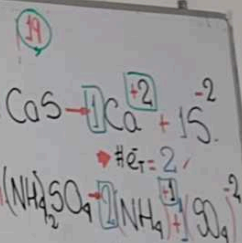 19
CaS→1Ca⁺² + 1S⁻²
→ #ēT = 2
(NH4)2SO4→2(NH4)⁺¹+1(SO4)⁻²